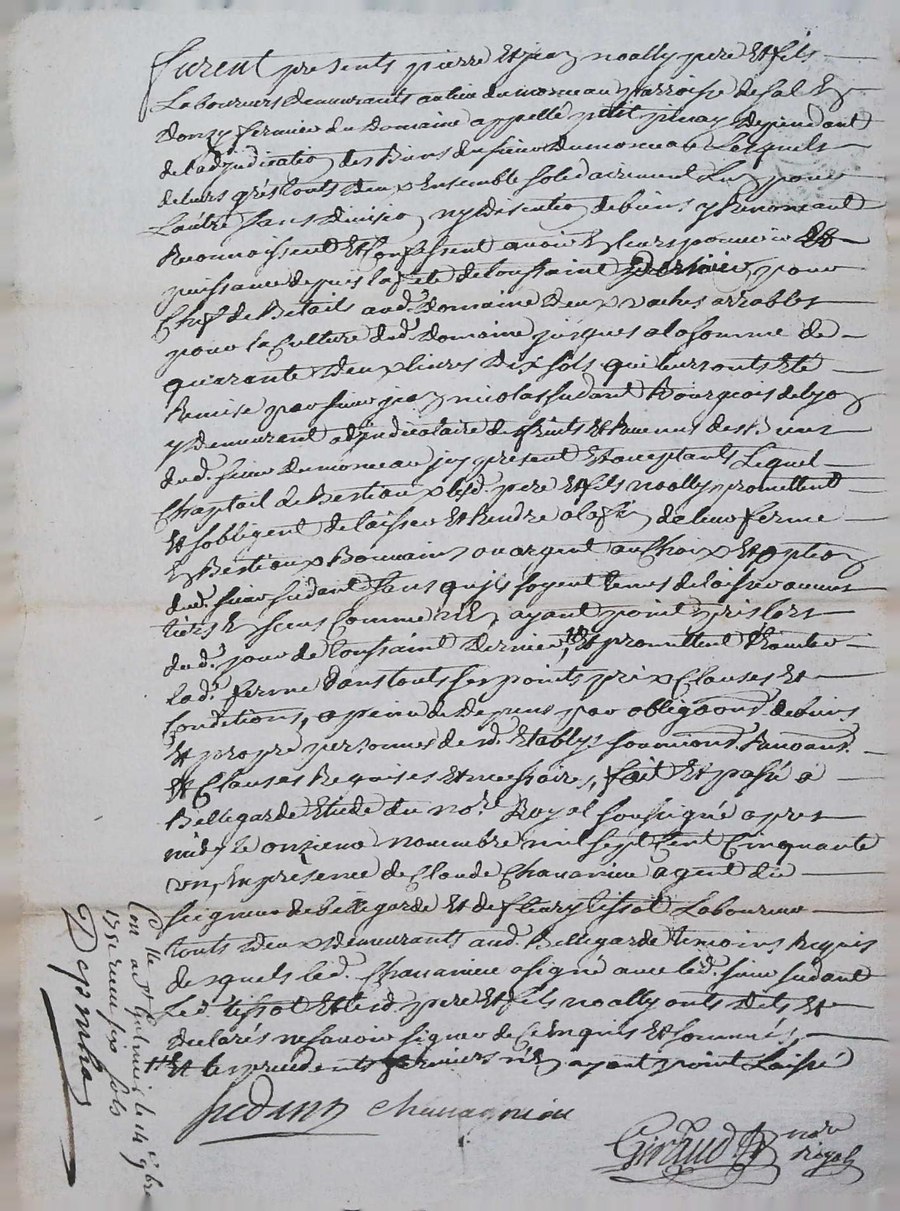 furent presents pierre Et jean noally pere Et fils
Laboureurs demeurants au lieu du morceau parroisse de Salt En
Donzy fermier du Domaine appellé petit pinay Dependant
de l'adjudication des Biens du sieur Dumorceau Lesquels
de leurs grés touts deux Ensemble solidairement L'un pour
L'autre sans division ny discution de biens y Renoncant
Reconnoissent Et Confessent avoir En leurs pouvoir Et
puissance depuis la fete de toussaint Dernier, pour
Cheps de Betails aud. Domaine deux vaches arrables
pour la Culture dud. Domaine jusques a la somme de
quarante deux livres dix sols qui leurs onts Eté
Remise par sieur jean nicolas sudant Bourgeois de lyon
y demeurant adjudicataire des fruits Et Revenus des Biens
dud. sieur dumorceau icy present Et acceptants Lequel
Chaptail de Bestiaux lesd. pere Et fils noally promettent
Et s'obligent de laisser Et Rendre a la fin de leur ferme
En Bestiaux Bouvains ou argent au Choix Et option
dud. sieur sudant sans qu'ils soyent tenus de laisser aucuns
tiers En sus Comme n'En ayant point pris lors
dud. jour de toussaint Dernier, Et promettent
lad. ferme dans touts ses points prix Clauses Et
Conditions, a peine de Depens par obligaons. de biens
Et propre personnes des. Etablys soumions. Renoaons.
Et Clauses Requises Et necessaires, fait Et passé a
Bellegarde Etude du nore. Royal soussigné apres
midy le onzieme novembre mil sept Cent Cinquante
un, En presence de Claude Chavanieu agent du
seigneur de Bellegarde Et de fleury tissot Laboureur
touts deux demeurants aud. Bellegarde temoins Requis
desquels led. Chavanieu a signé avec led. sieur sudant
Led. tissot Et lesd. pere Et fils noally onts dits Et
declarés ne savoir signer de Ce Enquis Et sommés,
Et les precedents fermiers n'En ayant point Laissé
sudant Chavagnieu
Giraud nore
Royal
Con. a st Galmier le 14 9bre
1751 Reçu six sols